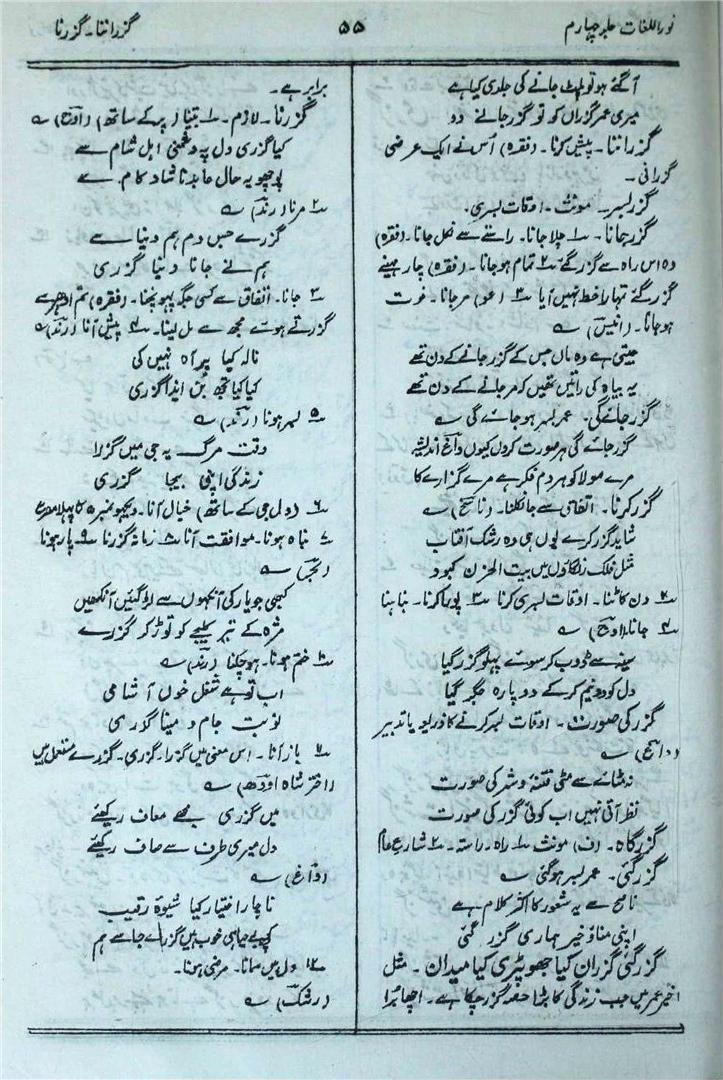 نوراللغات جلد چہارم
۵۵
گزرانتا۔ گزرنا
آگئے ہو تو پلٹ جانے کی جلدی کیا ہے
میری عمر گزراں کو تو گزر جانے دو
گزراننا۔ پیش کرنا۔ (فقرہ) اُس نے ایک عرضی
گزرانی۔
گزر بسر۔ مونث۔ اوقات بسری۔
گزرجانا۔ ۱ چلا جانا۔ راستے سے نکل جانا۔ (فقرہ)
وہ اس راہ سے گزر گئے ۲ تمام ہوجانا۔ (فقرہ) چار مہینے
گزر گئے تمہارا خط نہیں آیا ۳ (عو) مرجانا۔ فوت
ہوجانا۔ (انیسؔ) ؎
جیتی ہے وہ ماں جس کے گزر جانے کے دن تھے
یہ بیاہ کی راتیں تھیں کہ مر جانے کے دن تھے
گزر جائے گی۔ عمر بسر ہوجائے گی ؎
گزر جائے گی ہر صورت کروں کیوں داغؔ اندیشہ
مرے مولا کو ہر دم فکر ہے مرے گزارے کا
گزر کرنا۔ اتفاق سے جا نکلنا۔ (ناسخؔ) ؎
شاید گزر کرے یوں ہی وہ رشک آفتاب
مثل فلک رنگاؤں میں بیت الحزن کبود
۲ دن کاٹنا۔ اوقات بسری کرنا ۳ پورا کرنا۔ نباہنا
۴ جانا۔ (اوجؔ) ؎
سینہ سے ڈوب کر سوئے پہلو گزر گیا
دل کو دو نیم کرکے دوپارہ جگر گیا
گزر کی صورت۔ اوقات بسر کرنے کا ذریعہ یا تدبیر
(داغؔ) ؎
نہ مٹائے سے مٹی فتنہ و شر کی صورت
نظر آتی نہیں اب کوئی گزر کی صورت
گزرگاہ۔ (ف) مونث ۱ راہ۔ راستہ۔ ۲ شارع عام
گزرگئی۔ عمر بسر ہوگئی ؎
ناصح سے یہ شعور کا اکثر کلام ہے
اپنی مناؤ خیر ہماری گزر گئی
گزرگئی گزران کیا جھوپڑی کیا میدان۔ مثل
اخیر عمر میں جب زندگی کا بڑا حصہ گزر چکا ہے۔ اچھا بُرا
برابر ہے۔
گزرنا۔ لازم۔ ۱ بیتنا (پر کے ساتھ) (اوجؔ) ؎
کیا گزری دل پہ دشمنی اہل شام سے
پوچھو یہ حال عابد ناشاد کام سے
۲ مرنا (رندؔ) ؎
گزرے جس دم ہم دنیا سے
ہم نے جانا دنیا گزری
۳ جانا۔ اتفاق سے کسی جگہ پہونچنا۔ (فقرہ) تم ادھر سے
گزرتے ہوئے مجھ سے مل لینا۔ ۴ پیش آنا (رندؔ) ؎
نالہ کیا پر آہ نہیں کی
کیا کیا تجھ بن ایذا گزری
۵ بسر ہونا (رندؔ) ؎
وقت مرگ یہ جی میں گزرا
زندگی اپنی بیجا گزری
۶ (دل جی کے ساتھ) خیال آنا۔ دیکھو نمبر ۵ کا پہلا مصرع
۷ نباہ ہونا۔ موافقت آنا ۸ زمانہ گزرنا ۹ پار ہونا
(بحرؔ) ؎
کبھی جو یار کی آنکھوں سے لڑ گئیں آنکھیں
مژہ کے تیر کلیجے کو توڑ کر گزرے
۱۰ ختم ہونا۔ ہوچکنا (رندؔ) ؎
اب تو ہے شغل خوں آشامی
نوبت جام و مینا گزری
۱۱ باز آنا۔ اس معنی میں گزرا۔ گزری۔ گزرے مستعمل ہیں
(اختر شاہ اودھؔ) ؎
میں گزری مجھے معاف رکھئے
دل میری طرف سے صاف رکھئے
(داغؔ) ؎
ناچار اختیار کیا شیوۂ رقیب
کچھ بے حیا ہی خوب ہیں گزرے حیا سے ہم
۱۲ دل میں سمانا۔ مرضی ہونا۔
(رشکؔ) ؎